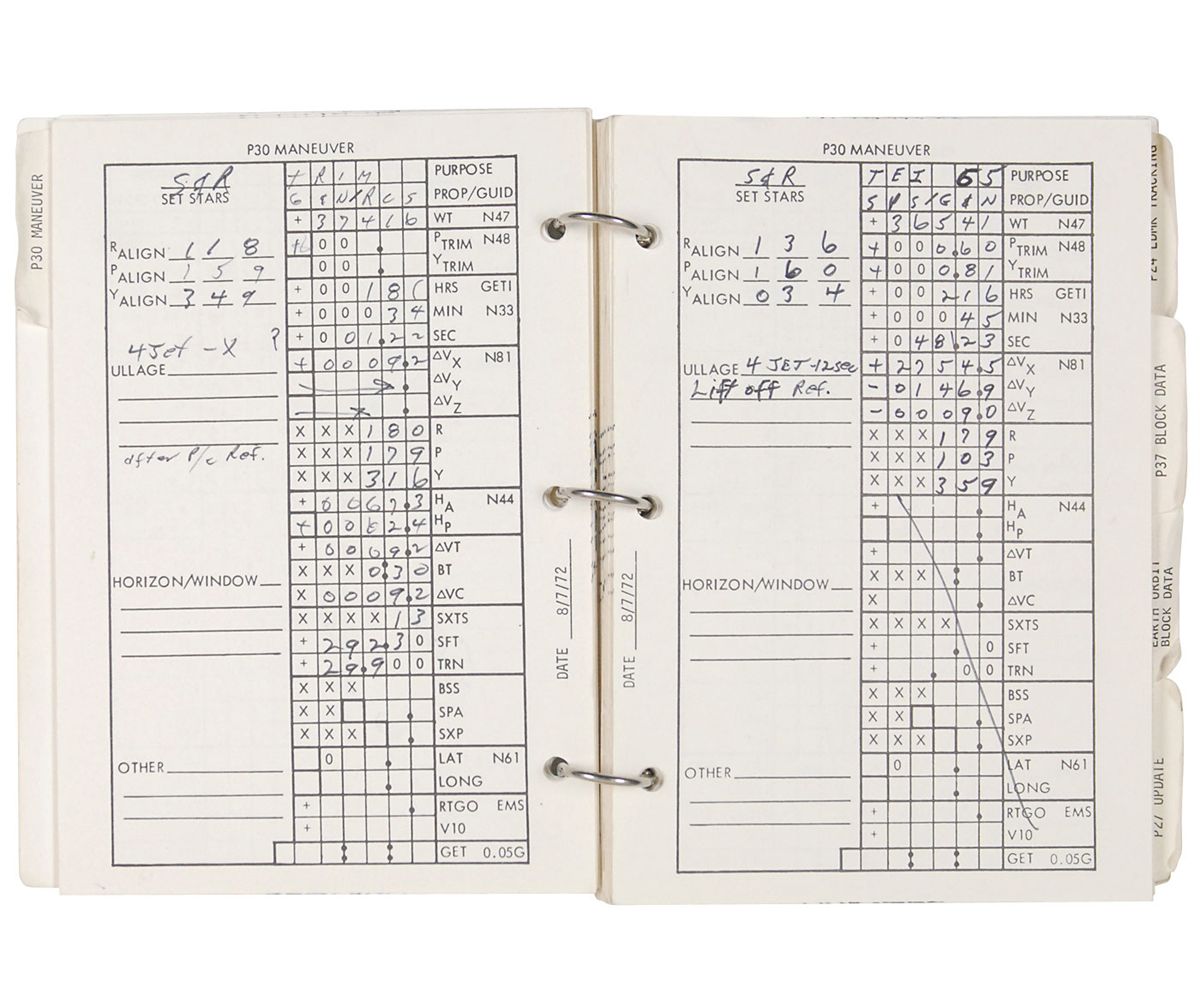 P30 MANEUVER
P30 MANEUVER
S&R
SET STARS
T R I M PURPOSE
G & N / R C S PROP/GUID
+ 3 7 4 1 6 WT N47
0 0 . PTRIM N48
0 0 . YTRIM
RALIGN 1 1 8
PALIGN 1 5 9
YALIGN 3 4 9
+ 0 0 1 8 HRS GETI
+ 0 0 0 3 4 MIN N33
+ 0 0 1.2 2 SEC
4 Jet -X ?
ULLAGE
+ 0 0 0 9.2 ΔVX N81
ΔVY
ΔVZ
X X X 1 8 0 R
after P/C Ref.
X X X 1 7 9 P
X X X 3 1 6 Y
+ 0 0 6 7.3 HA N44
+ 0 0 6 2.4 HP
+ 0 0 0 9.2 ΔVT
HORIZON/WINDOW
X X X 0:3 0 BT
X 0 0 0 9.2 ΔVC
X X X X 1 3 SXTS
+ 2 9 2.3 0 SFT
+ 2 9.9 0 0 TRN
X X X BSS
X X . SPA
X X X . SXP
OTHER
0 . LAT N61
. LONG
+ . RTGO EMS
+ V10
: : GET 0.05G
DATE 8/7/72
P30 MANEUVER
S&R
SET STARS
T E I 6 5 PURPOSE
S P S / G & N PROP/GUID
+ 3 6 5 4 1 WT N47
+ 0 0 0.6 0 PTRIM N48
+ 0 0 0.8 1 YTRIM
RALIGN 1 3 6
PALIGN 1 6 0
YALIGN 0 3 4
+ 0 0 2 1 6 HRS GETI
+ 0 0 0 4 5 MIN N33
+ 0 4 8.2 3 SEC
ULLAGE 4 JET-12sec
Lift off Ref.
+ 2 7 5 4.5 ΔVX N81
- 0 1 4 6.9 ΔVY
- 0 0 0 9.0 ΔVZ
X X X 1 7 9 R
X X X 1 0 3 P
X X X 3 5 9 Y
+ . HA N44
. HP
+ . ΔVT
HORIZON/WINDOW
X X X : BT
X . ΔVC
X X X X SXTS
+ . 0 SFT
+ . 0 0 TRN
X X X BSS
X X . SPA
X X X . SXP
OTHER
0 . LAT N61
. LONG
+ . RTGO EMS
+ V10
: : GET 0.05G
DATE 8/7/72
P24 LDMK TRACKING
P37 BLOCK DATA
EARTH ORBIT
BLOCK DATA
P27 UPDATE